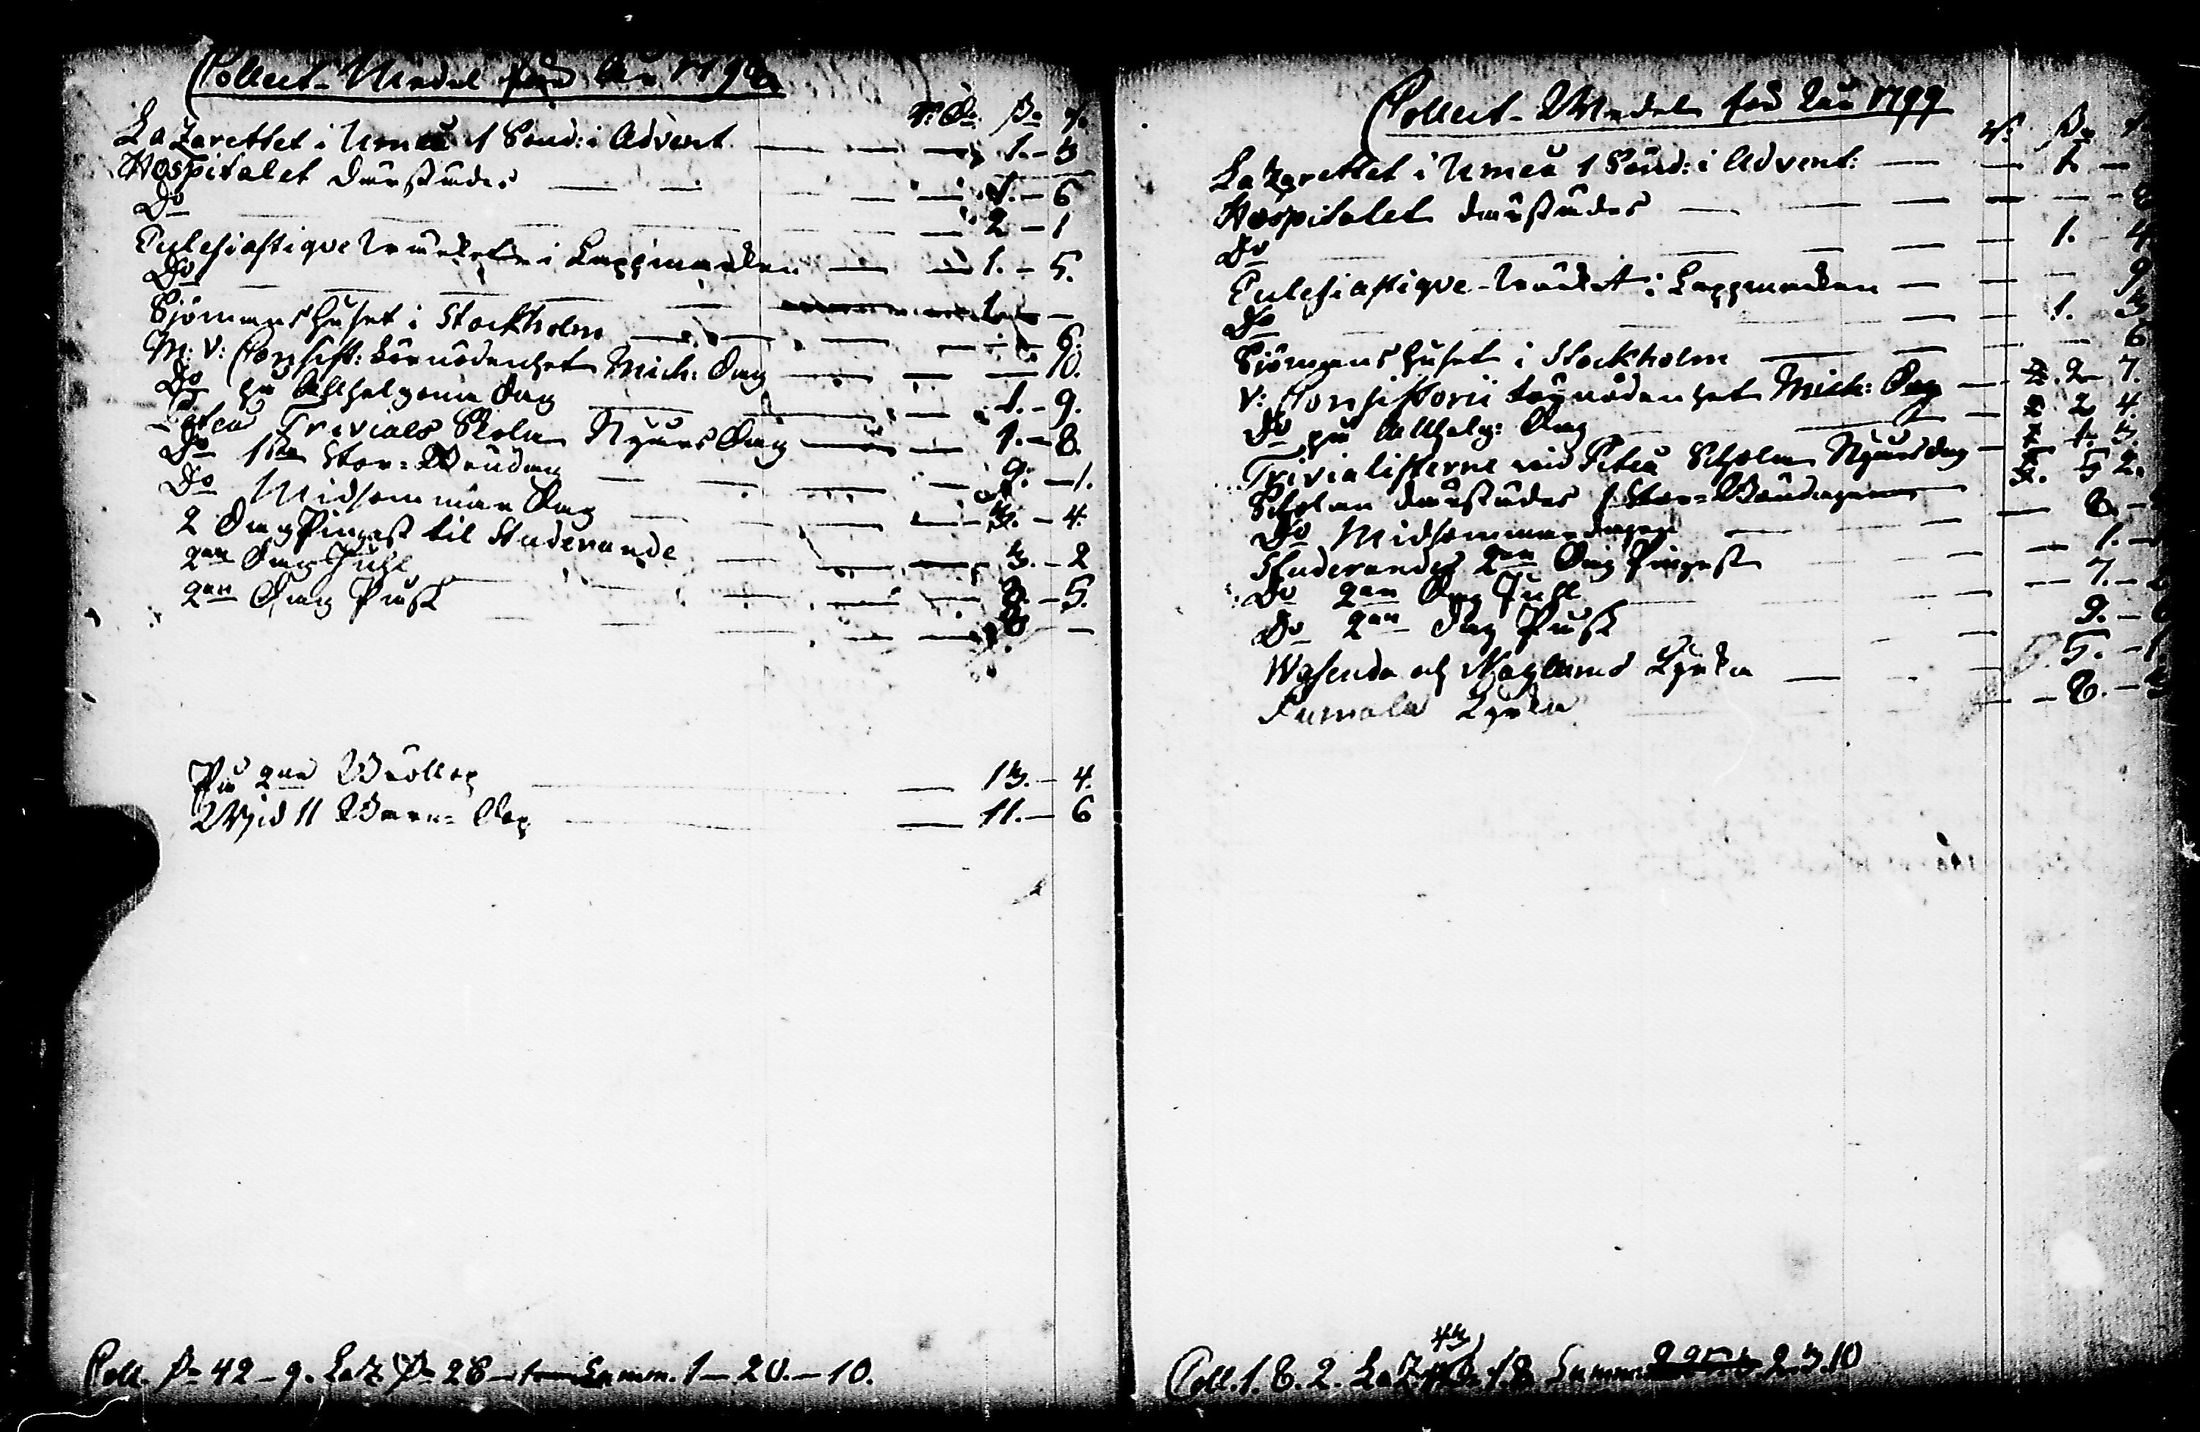 Collect-Medel för år 1798
r:dr ß r.
Lazarettet i Umeå 1 Sönd: i Advent 1.-3
Hospitalet därstädes 1.-6
Do 2-1
Eclesiastique Wärket i Lappmarken 1.-5.
Do 1.-
Sjömanshuset i Stockholm 6.
M: V: Consist: torvödenhet Mich: Dag 10.
Do på Allhelgona Dag 1.-9.
Piteå Trivials Skola Nyårs Dag 1.-8.
Do 1sta Stor-Böndag 9.-1.
Do Midsommar Dag 3.-4.
2 Dag Pingst til Studerande 3.-2
2an Dag Juhl 8.-5.
2an Dag Påsk 8-
På 2ne Bröllop 13.-4.
Wid 11 Barn-dop 11.-6
Coll. ß 42-9. Laz. ß 28-1 Summ. 1-20.-10.
Collect-Medel för år 1799
r: ß r.
Lazarettet i Umeå 1 Sönd: i Advent: 1.-
Hospitalet därstädes 8
Do 1. 4
Eclesiastique-Wärket i Lappmarken 9
Do 1. 3
Sjömanshuset i Stockholm 6
V: Consistorii torvödenhet Mich: Dag 2. 7.
Do på Allhelg: Dag 2 4.
Trivialisterne vid Piteå Schola Nyårsdag 1. 3.
Scholan därstädes 1 Stor-Böndagen 5 2.
Do Midsommardagen 8.-
Studerandes 2an Dag Pingst 1.-
Do 2an Dag Juhl 7.-
Do 2an Dag Påsk 9.-
Wasenda och Naglums Kyrka 5.-1
Kumala Kyrka 8.-
Coll. 1. 8. 2. Laz. 43 Summ: 2.3.10